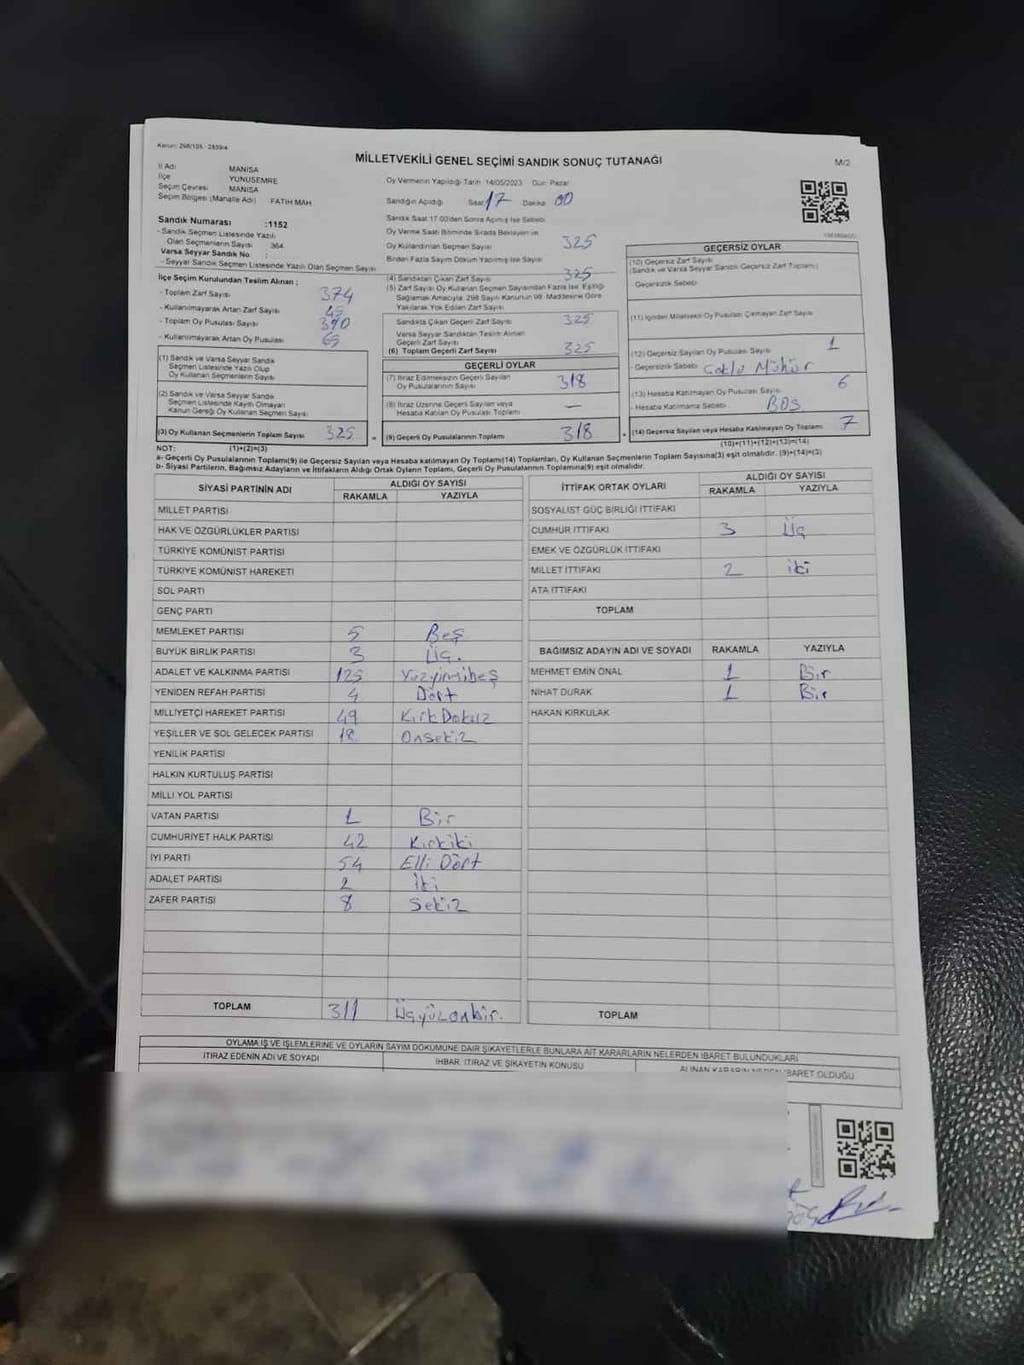 Kanun: 298/105 - 2839/4
MİLLETVEKİLİ GENEL SEÇİMİ SANDIK SONUÇ TUTANAĞI
M/2
İl Adı MANİSA
İlçe YUNUSEMRE
Seçim Çevresi MANİSA
Seçim Bölgesi (Mahalle Adı) FATİH MAH
Sandık Numarası :1152
- Sandık Seçmen Listesinde Yazılı
Olan Seçmenlerin Sayısı 364
Varsa Seyyar Sandık No :
- Seyyar Sandık Seçmen Listesinde Yazılı Olan Seçmen Sayısı
İlçe Seçim Kurulundan Teslim Alınan ;
- Toplam Zarf Sayısı 374
- Kullanılmayarak Artan Zarf Sayısı
- Toplam Oy Pusulası Sayısı
- Kullanılmayarak Artan Oy Pusulası 65
(1) Sandık ve Varsa Seyyar Sandık
Seçmen Listesinde Yazılı Olup
Oy Kullanan Seçmenlerin Sayısı
(2) Sandık ve Varsa Seyyar Sandık
Seçmen Listesinde Kaydı Olmayan
Kanun Gereği Oy Kullanan Seçmen Sayısı
(3) Oy Kullanan Seçmenlerin Toplam Sayısı 325
Oy Vermenin Yapıldığı Tarih 14/05/2023 Gün: Pazar
Sandığın Açıldığı Saat 17 Dakika 00
Sandık Saat 17.00'den Sonra Açılmış İse Sebebi
Oy Verme Saati Bitiminde Sırada Bekleyen ve
Oy Kullandırılan Seçmen Sayısı 325
Birden Fazla Sayım Döküm Yapılmış İse Sayısı
(4) Sandıktan Çıkan Zarf Sayısı 325
(5) Zarf Sayısı Oy Kullanan Seçmen Sayısından Fazla İse, Eşitliği
Sağlamak Amacıyla, 298 Sayılı Kanunun 98. Maddesine Göre
Yakılarak Yok Edilen Zarf Sayısı
Sandıkta Çıkan Geçerli Zarf Sayısı 325
Varsa Seyyar Sandıktan Teslim Alınan
Geçerli Zarf Sayısı
(6) Toplam Geçerli Zarf Sayısı 325
GEÇERLİ OYLAR
(7) İtiraz Edilmeksizin Geçerli Sayılan
Oy Pusulalarının Sayısı 318
(8) İtiraz Üzerine Geçerli Sayılan veya
Hesaba Katılan Oy Pusulası Toplamı —
= (9) Geçerli Oy Pusulalarının Toplamı 318
GEÇERSİZ OYLAR
(10) Geçersiz Zarf Sayısı
(Sandık ve Varsa Seyyar Sandık Geçersiz Zarf Toplamı)
Geçersizlik Sebebi
(11) İçinden Milletvekili Oy Pusulası Çıkmayan Zarf Sayısı
(12) Geçersiz Sayılan Oy Pusulası Sayısı 1
Geçersizlik Sebebi Çoklu Mühür
(13) Hesaba Katılmayan Oy Pusulası Sayısı 6
- Hesaba Katılmama Sebebi BOŞ
+ (14) Geçersiz Sayılan veya Hesaba Katılmayan Oy Toplamı 7
NOT: (1)+(2)=(3)
(10)+(11)+(12)+(13)=(14)
a- Geçerli Oy Pusulalarının Toplamı(9) ile Geçersiz Sayılan veya Hesaba katılmayan Oy Toplamı(14) Toplamları, Oy Kullanan Seçmenlerin Toplam Sayısına(3) eşit olmalıdır. (9)+(14)=(3)
b- Siyasi Partilerin, Bağımsız Adayların ve İttifakların Aldığı Ortak Oyların Toplamı, Geçerli Oy Pusulalarının Toplamına(9) eşit olmalıdır.
SİYASİ PARTİNİN ADI ALDIĞI OY SAYISI
RAKAMLA YAZIYLA
MİLLET PARTİSİ
HAK VE ÖZGÜRLÜKLER PARTİSİ
TÜRKİYE KOMÜNİST PARTİSİ
TÜRKİYE KOMÜNİST HAREKETİ
SOL PARTİ
GENÇ PARTİ
MEMLEKET PARTİSİ 5 Beş
BÜYÜK BİRLİK PARTİSİ 3 Üç.
ADALET VE KALKINMA PARTİSİ 125 Yüzyirmibeş
YENİDEN REFAH PARTİSİ 4 Dört
MİLLİYETÇİ HAREKET PARTİSİ 49 Kırk Dokuz
YEŞİLLER VE SOL GELECEK PARTİSİ 18 Onsekiz
YENİLİK PARTİSİ
HALKIN KURTULUŞ PARTİSİ
MİLLİ YOL PARTİSİ
VATAN PARTİSİ 1 Bir
CUMHURİYET HALK PARTİSİ 42 Kırkiki
İYİ PARTİ 54 Elli Dört
ADALET PARTİSİ 2 İki
ZAFER PARTİSİ 8 Sekiz
TOPLAM 311 Üçyüzonbir.
İTTİFAK ORTAK OYLARI ALDIĞI OY SAYISI
RAKAMLA YAZIYLA
SOSYALİST GÜÇ BİRLİĞİ İTTİFAKI
CUMHUR İTTİFAKI 3 Üç
EMEK VE ÖZGÜRLÜK İTTİFAKI
MİLLET İTTİFAKI 2 iki
ATA İTTİFAKI
TOPLAM
BAĞIMSIZ ADAYIN ADI VE SOYADI RAKAMLA YAZIYLA
MEHMET EMİN ÖNAL 1 Bir
NİHAT DURAK 1 Bir
HAKAN KIRKULAK
TOPLAM
OYLAMA İŞ VE İŞLEMLERİNE VE OYLARIN SAYIM DÖKÜMÜNE DAİR ŞİKAYETLERLE BUNLARA AİT KARARLARIN NELERDEN İBARET BULUNDUKLARI
İTİRAZ EDENİN ADI VE SOYADI İHBAR, İTİRAZ VE ŞİKAYETİN KONUSU ALINAN KARARIN NEDEN İBARET OLDUĞU